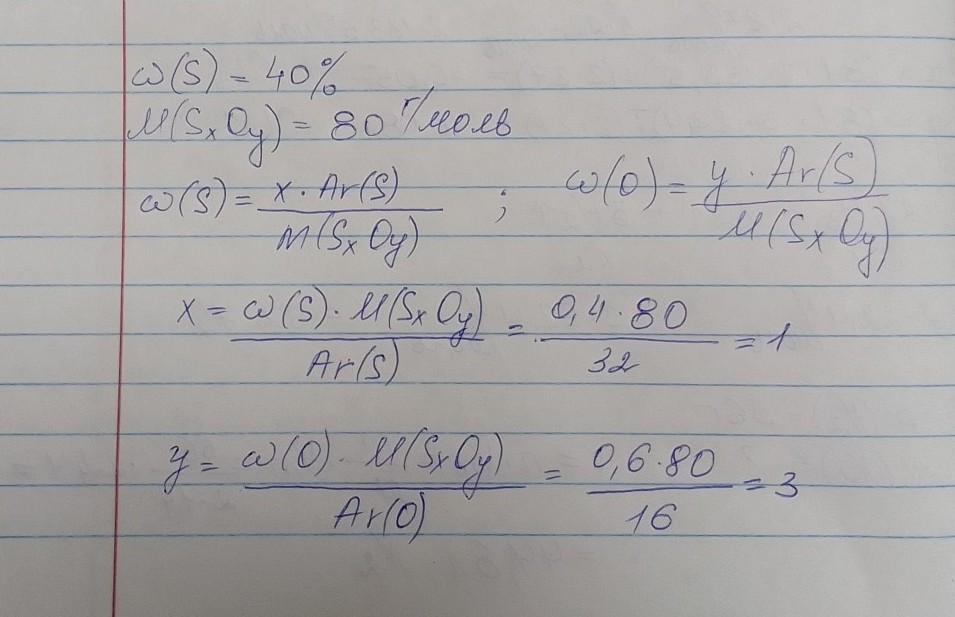 ω(S) = 40%
M(SxOy) = 80 г/моль
ω(S) = x · Ar(S) / M(SxOy) ; ω(O) = y · Ar(S) / M(SxOy)
x = ω(S) · M(SxOy) / Ar(S) = 0,4 · 80 / 32 = 1
y = ω(O) · M(SxOy) / Ar(O) = 0,6 · 80 / 16 = 3